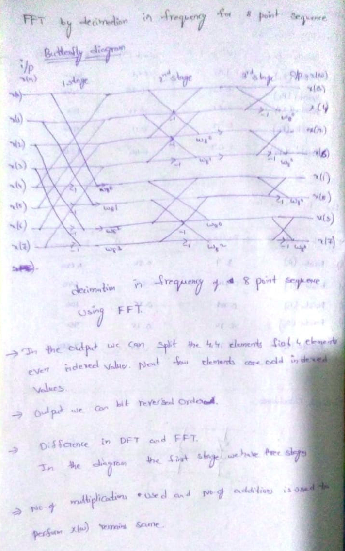 FFT by decimation in frequency for 8 point sequence
Butterfly diagram
i/p
x(n) 1 stage 2nd stage 3rd stage O/p x(k)
x(0) x(0)
x(1) x(4)
x(2) x(2)
x(3) x(6)
x(4) x(1)
x(5) x(5)
x(6) x(3)
x(7) x(7)
decimation in frequency of 8 point sequence
using FFT.
→ In the output we can split the 4,4 elements first 4 elements
even indexed values. Next four elements are odd indexed
values.
→ Output we can bit reversed ordered.
→ Difference in DFT and FFT.
In the diagram the first stage we have three stages
→ no. of multiplications used and no. of additions is used to
perform x(n) remains same.